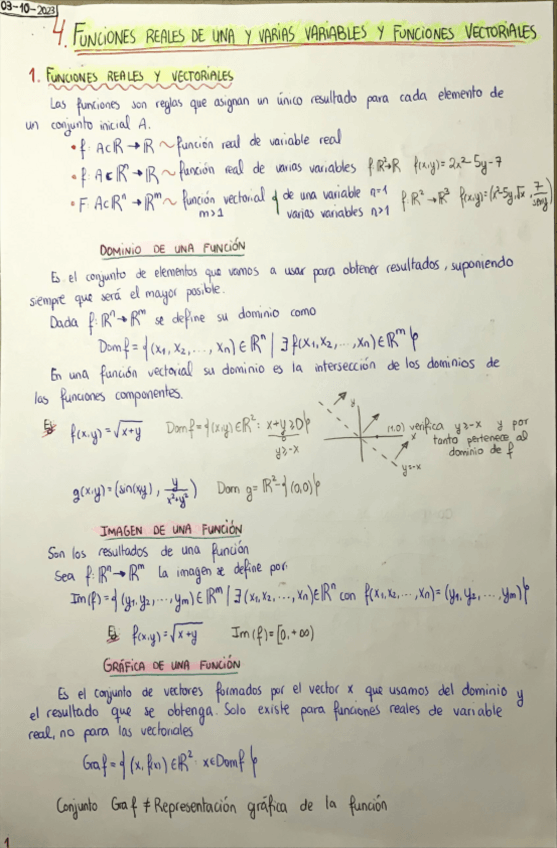 03-10-2023
4. FUNCIONES REALES DE UNA Y VARIAS VARIABLES Y FUNCIONES VECTORIALES
1. FUNCIONES REALES Y VECTORIALES
Las funciones son reglas que asignan un único resultado para cada elemento de
un conjunto inicial A.
• f: A⊂ℝ → ℝ ~ función real de variable real
• f: A⊂ℝⁿ → ℝ ~ función real de varias variables f:ℝ²→ℝ f(x,y)=2x²-5y-7
• F: A⊂ℝⁿ → ℝᵐ ~ función vectorial { de una variable n=1 f:ℝ²→ℝ³ f(x,y)=(x²-5y,√x, 7/seny)
m>1 varias variables n>1
DOMINIO DE UNA FUNCIÓN
Es el conjunto de elementos que vamos a usar para obtener resultados, suponiendo
siempre que será el mayor posible.
Dada f:ℝⁿ→ℝᵐ se define su dominio como
Dom f = {(x₁, x₂, ..., xₙ) ∈ ℝⁿ | ∃ f(x₁, x₂, ..., xₙ) ∈ ℝᵐ}
En una función vectorial su dominio es la intersección de los dominios de
las funciones componentes.
Ej f(x,y)=√x+y Dom f = {(x,y)∈ℝ²: x+y≥0}
y≥-x
y
x
y=-x
(1,0) verifica y≥-x y por
tanto pertenece al
dominio de f
g(x,y)=(sin(xy), y/x²+y²) Dom g=ℝ²-{(0,0)}
IMAGEN DE UNA FUNCIÓN
Son los resultados de una función
Sea f:ℝⁿ→ℝᵐ la imagen se define por:
Im(f) = {(y₁, y₂, ..., yₘ)∈ℝᵐ | ∃(x₁, x₂, ..., xₙ)∈ℝⁿ con f(x₁, x₂, ..., xₙ)=(y₁, y₂, ..., yₘ)}
Ej f(x,y)=√x+y Im(f)=[0,+∞)
GRÁFICA DE UNA FUNCIÓN
Es el conjunto de vectores formados por el vector x que usamos del dominio y
el resultado que se obtenga. Solo existe para funciones reales de variable
real, no para las vectoriales
Graf = {(x, f(x))∈ℝ²: x∈Dom f}
Conjunto Graf ≠ Representación gráfica de la función
1